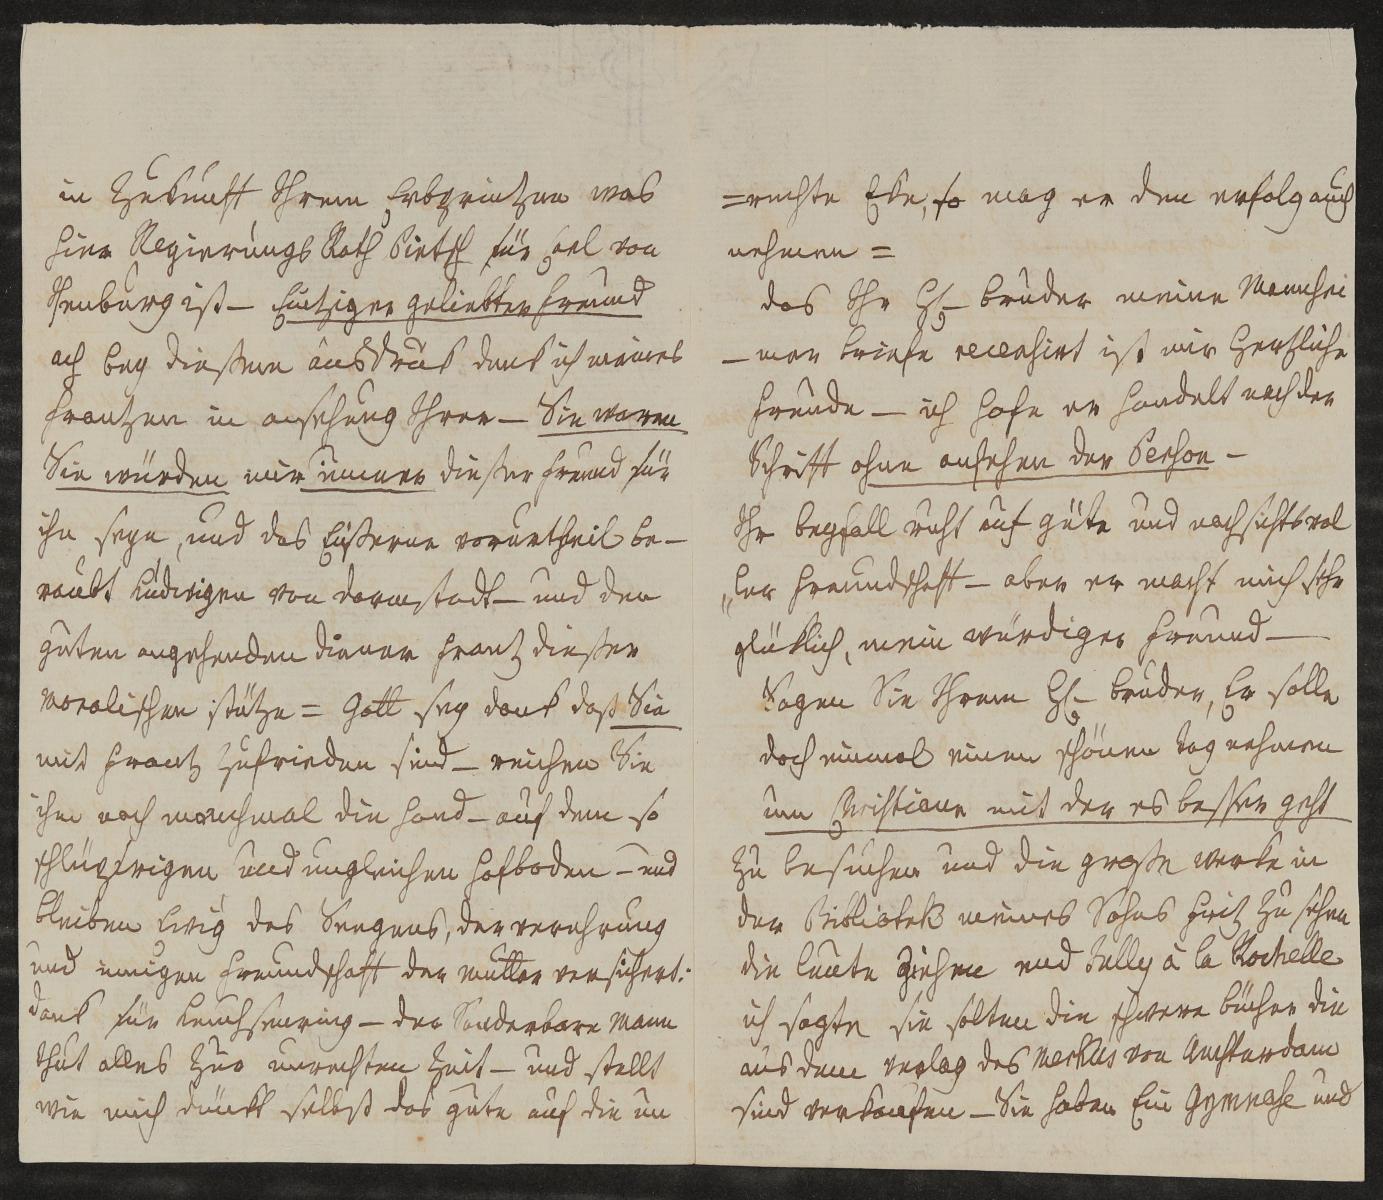 in Zukunft Ihrem Erbprintzen was
hier Regierungs Rath Pietsch für Carl von
Isenburg ist – Eintziger geliebter Freund
ach bey dießem ausdruk denk ich meines
Frantzen in ansehung Ihrer – Sie waren
Sie würden mir immer dießer Freund für
ihn seyn, und das Eüßerne vorurtheil be–
raubt Ludwigen von darmstadt – und den
guten angehenden diener Frantz dießer
Moralischen stütze = Gott sey dank daß Sie
mit Frantz zufrieden sind – reichen Sie
ihm noch manchmal die Hand – auf dem so
schlüpfrigen und ungleichen Hofboden – und
bleiben Ewig des Seegens, der verehrung
und innigen Freundschaft der Mutter versichert:
dank für Leuchsenring – der Sonderbare Mann
thut alles zur unrechten Zeit – und stellt
wie mich dünkt selbst das gute auf die un
=rechte Eke, so mag er den erfolg auch
nehmen =
das Ihr H– bruder meine Mannhei
–mer briefe recensirt ist mir Hertzliche
Freude – ich hofe er handelt nach der
Schrift ohne ansehen der Person –
Ihr beyfall ruht auf güte und nachsichtsvol
"ler Freundschaft – aber er macht mich sehr
glüklich, mein würdiger Freund –
Sagen Sie Ihrem H– bruder, Er solle
doch einmal einen schönen tag nehmen
um Christiane mit der es besser geht
zu besuchen und die große werke in
der Bibliotek meines Sohns Fritz zu sehen
die leute Ziehen und Jully à la Rochelle
ich sagte sie solten die schwere bücher die
aus dem verlag des Merkus von Amsterdam
sind verkaufen – Sie haben Ein Gymnase und